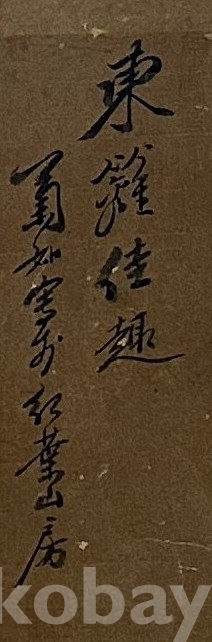 東籬佳趣
如寫於紅葉山房
kobay